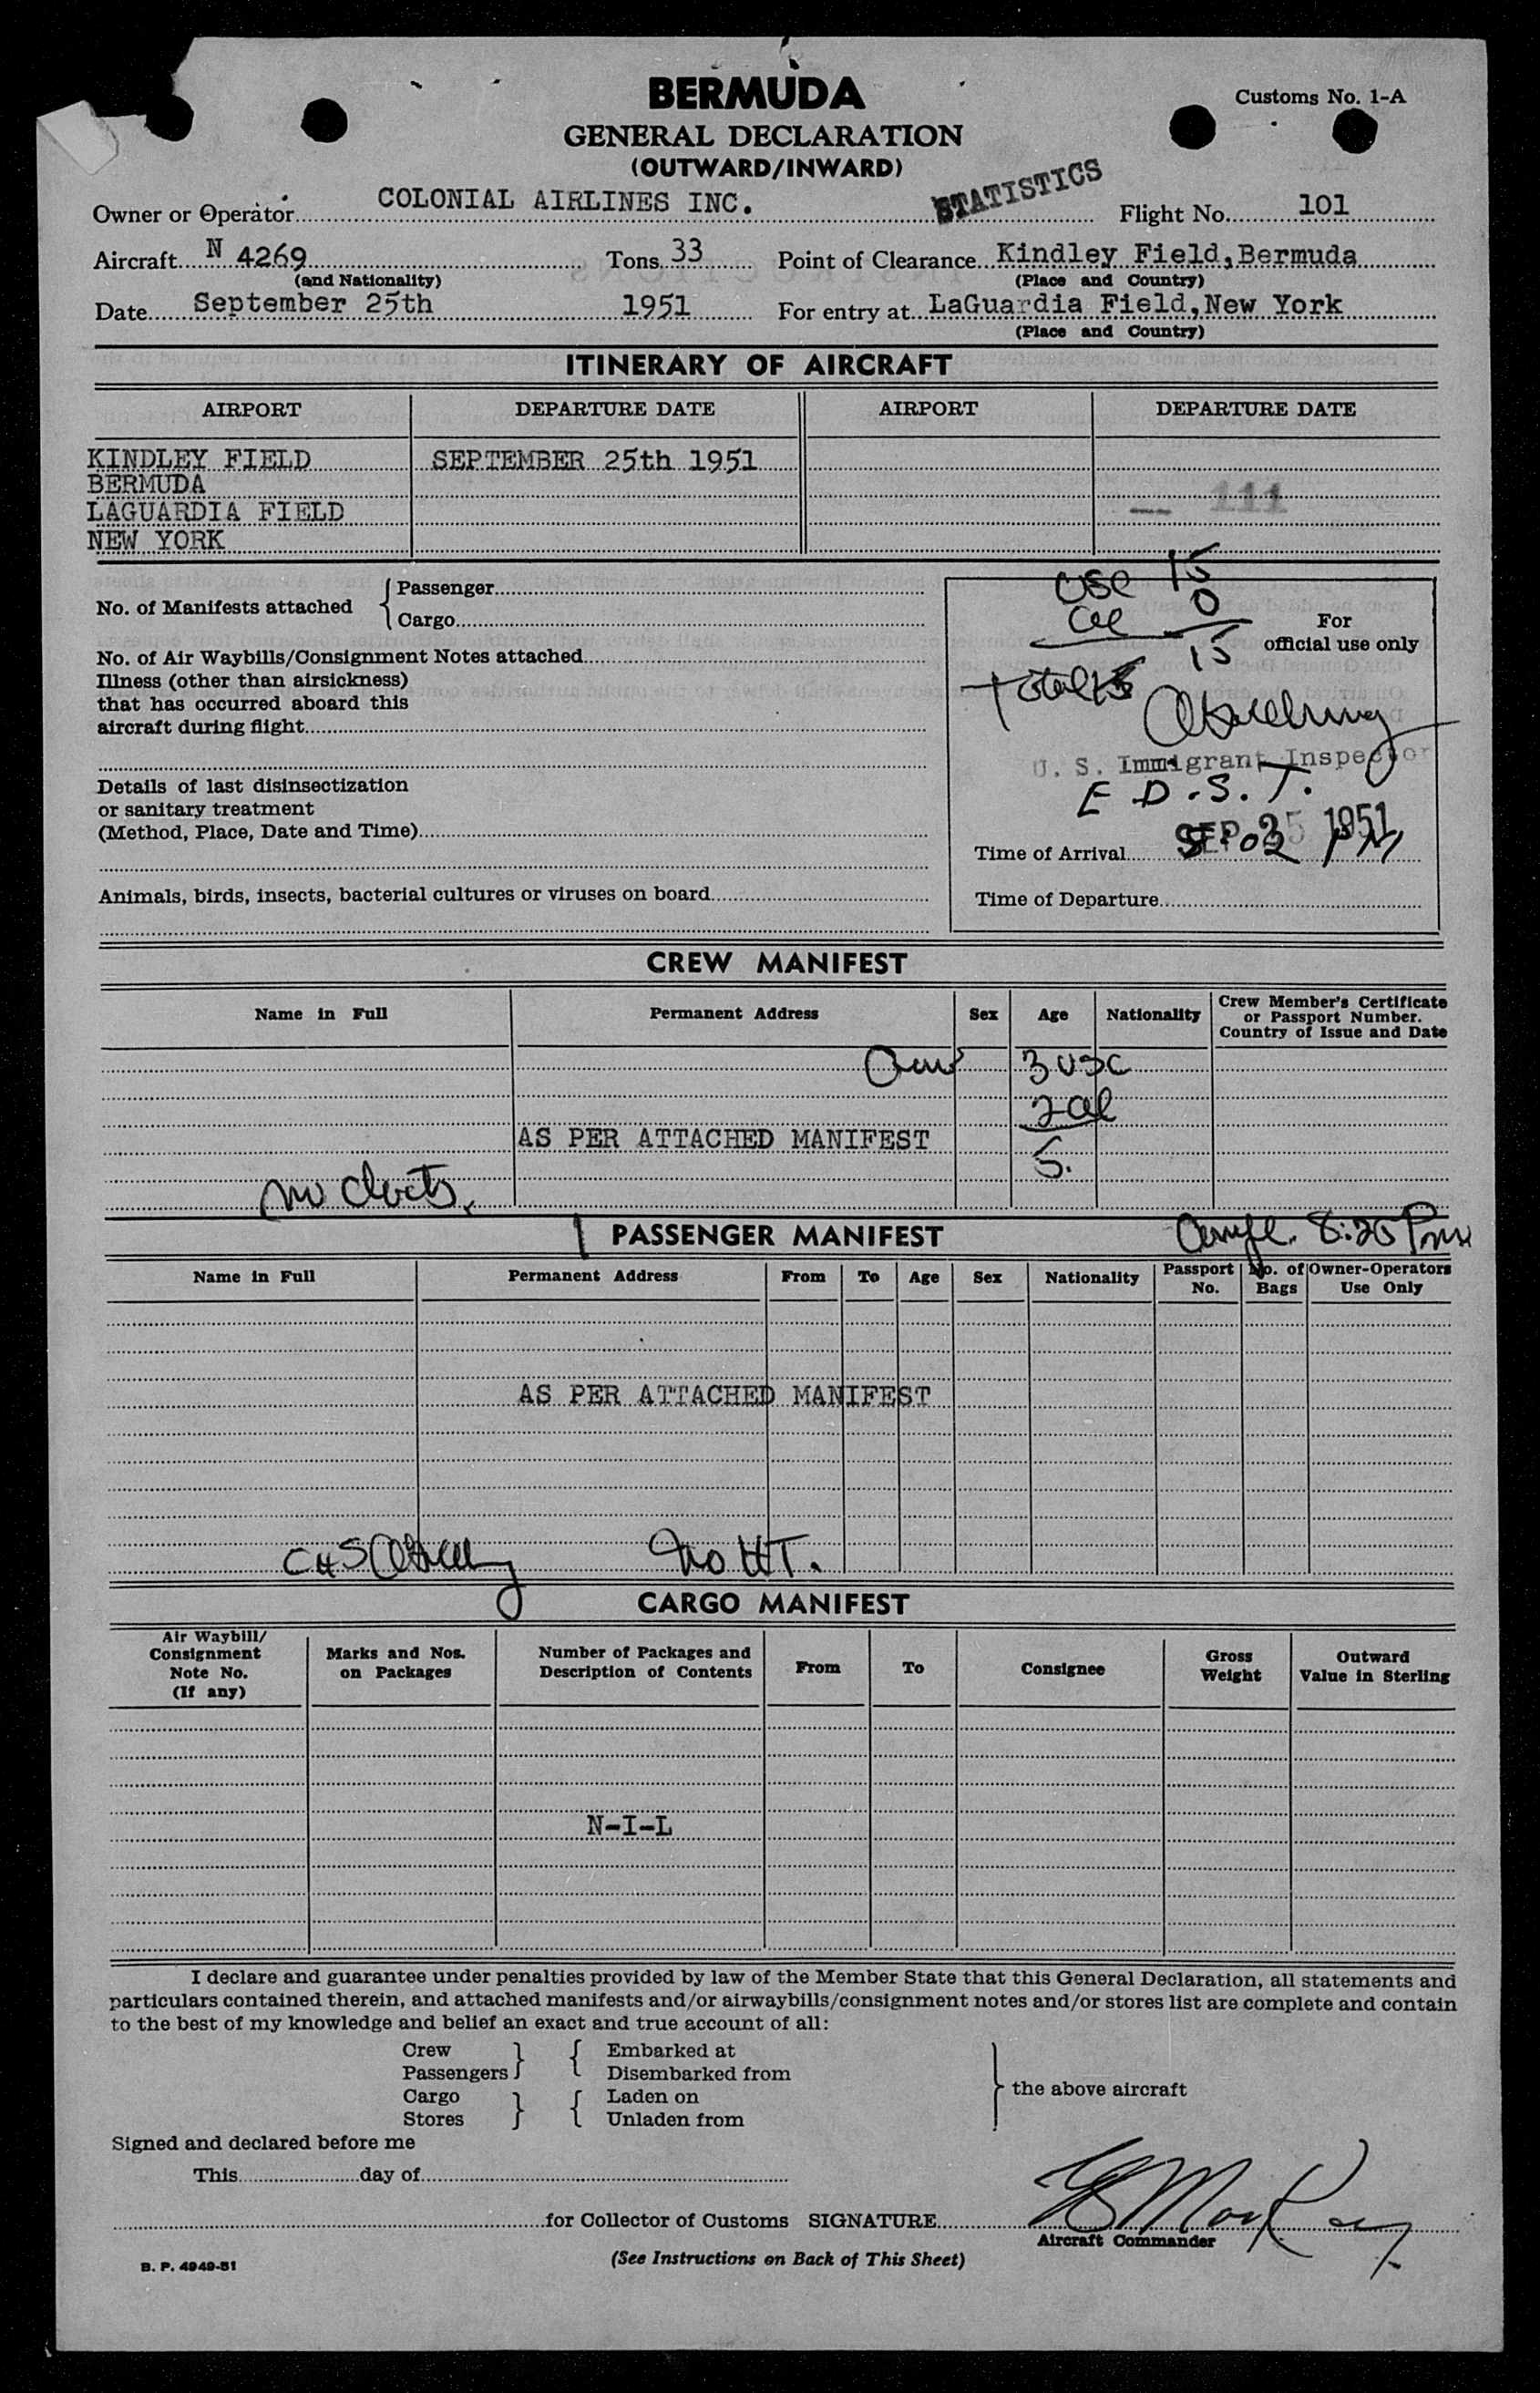 BERMUDA
Customs No. 1-A
GENERAL DECLARATION
(OUTWARD/INWARD)
STATISTICS
Owner or Operator COLONIAL AIRLINES INC. Flight No. 101
Aircraft N 4269 Tons 33 Point of Clearance Kindley Field, Bermuda
(and Nationality) (Place and Country)
Date September 25th 1951 For entry at LaGuardia Field, New York
(Place and Country)
ITINERARY OF AIRCRAFT
AIRPORT DEPARTURE DATE AIRPORT DEPARTURE DATE
KINDLEY FIELD SEPTEMBER 25th 1951
BERMUDA
111
LAGUARDIA FIELD
NEW YORK
No. of Manifests attached { Passenger
Cargo
USC 15
al 0
15
Total 15
For
official use only
No. of Air Waybills/Consignment Notes attached
Illness (other than airsickness)
that has occurred aboard this
aircraft during flight
U. S. Immigrant Inspector
E.D.S.T.
Details of last disinsectization
or sanitary treatment
(Method, Place, Date and Time)
SEP 25 1951
Time of Arrival 02 PM
Animals, birds, insects, bacterial cultures or viruses on board
Time of Departure
CREW MANIFEST
Name in Full Permanent Address Sex Age Nationality Crew Member's Certificate
or Passport Number.
Country of Issue and Date
3 USC
2 al
AS PER ATTACHED MANIFEST
5.
no
PASSENGER MANIFEST
8:20 Pm
Name in Full Permanent Address From To Age Sex Nationality Passport No. No. of Bags Owner-Operators Use Only
AS PER ATTACHED MANIFEST
No HT.
CARGO MANIFEST
Air Waybill/
Consignment
Note No.
(If any)
Marks and Nos.
on Packages
Number of Packages and
Description of Contents
From To Consignee
Gross
Weight
Outward
Value in Sterling
N-I-L
I declare and guarantee under penalties provided by law of the Member State that this General Declaration, all statements and
particulars contained therein, and attached manifests and/or airwaybills/consignment notes and/or stores list are complete and contain
to the best of my knowledge and belief an exact and true account of all:
Crew Embarked at
Passengers Disembarked from
the above aircraft
Cargo Laden on
Stores Unladen from
Signed and declared before me
This day of
for Collector of Customs SIGNATURE
Aircraft Commander
B. P. 4949-51
(See Instructions on Back of This Sheet)